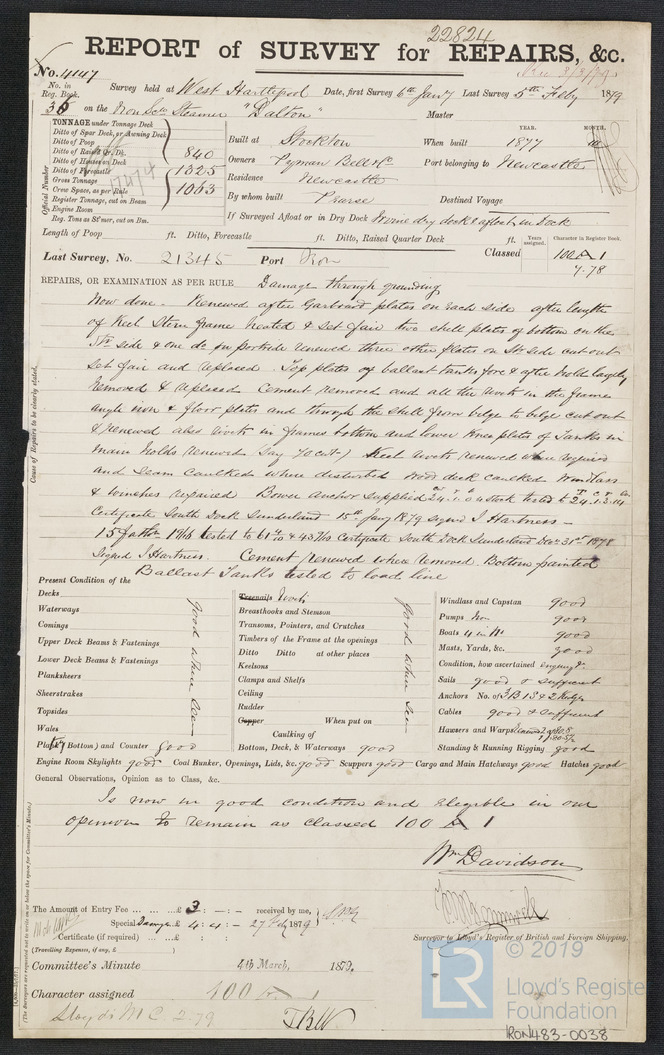 22824
REPORT of SURVEY for REPAIRS, &c.
No. 4147
No. in Reg. Book. Survey held at West Hartlepool Date, first Survey 6th Jany Last Survey 5th Feby 1879
on the Iron Scw Steamer "Dalton" Master
TONNAGE under Tonnage Deck
Ditto of Spar Deck, or Awning Deck
Ditto of Poop
Ditto of Raised Qr. Dk. 840
Ditto of Houses on Deck
Ditto of Forecastle 1325
Gross Tonnage
Crew Space, as per Rule 1063
Register Tonnage, cut on Beam
Engine Room
Reg. Tons as St'mer, cut on Bm.
Official Number
Built at Stockton
YEAR. MONTH.
When built 1877
Owners Pyman Bell & Co
Port belonging to Newcastle
Residence Newcastle
By whom built Pearse
Destined Voyage
If Surveyed Afloat or in Dry Dock In one dry dock & afloat in Dock
Length of Poop ft. Ditto, Forecastle ft. Ditto, Raised Quarter Deck ft.
Years assigned. Character in Register Book.
Last Survey, No. 21345 Port Iron Classed 100 A 1
7.78
REPAIRS, OR EXAMINATION AS PER RULE Damage through grounding
Now done. Renewed after Garboard plates on each side after length
of Keel Stern frame heated & set fair two shell plates of bottom on the
St side & one do on port side renewed three other plates on St side cut out
set fair and replaced. Top plates of ballast tanks fore & after holds largely
removed & replaced Cement removed and all the rivets in the frame
angle iron & floor plates and through the shell from bilge to bilge cut out
& renewed also rivets in frames bottom and lower knee plates of Tanks in
main holds renewed Keel rivets renewed where required
and seam caulked where disturbed wood deck caulked Windlass
& winches repaired Bower anchor supplied stock tested to
Certificate South Dock Sunderland 15th Jany 1879 signed I Hartness –
15 fathm 1 9/16 tested to Certificate South Dock Sunderland Dec 31st 1878
Signed I Hartness. Cement renewed where removed. Bottom painted
Ballast Tanks tested to load line
Cause of Repairs to be clearly stated.
Present Condition of the
Decks
Waterways
Comings
Upper Deck Beams & Fastenings
Lower Deck Beams & Fastenings
Planksheers
Sheerstrakes
Topsides
Wales
good where seen
Plating (Bottom) and Counter good
Treenails Rivets
Breasthooks and Stemson
Transoms, Pointers, and Crutches
Timbers of the Frame at the openings
Ditto Ditto at other places
Keelsons
Clamps and Shelfs
Ceiling
Rudder
Copper When put on
good where seen
Caulking of
Bottom, Deck, & Waterways good
Windlass and Capstan good
Pumps Iron good
Boats 4 in No good
Masts, Yards, &c. good
Condition, how ascertained enquiry &c
Sails good & sufficient
Anchors No. of 3 B 1 S & 2 Kedges
Cables good & sufficient
Hawsers and Warps
Standing & Running Rigging good
Engine Room Skylights good Coal Bunker, Openings, Lids, &c. good Scuppers good Cargo and Main Hatchways good Hatches good
General Observations, Opinion as to Class, &c.
Is now in good condition and eligible in our
opinion to remain as classed 100 A 1
Wm Davidson
The Amount of Entry Fee ... £ 3 : – : – received by me,
Special Damage £ 4 : 4 : – 27 Feb 1879
Certificate (if required) ... £
(Travelling Expenses, if any, £ )
Surveyor to Lloyd's Register of British and Foreign Shipping.
Committee's Minute 4th March, 1879.
Character assigned 100 A 1
Lloyd's M C 2.79
(The Surveyors are requested not to write on or below the space for Committee's Minute.)
© 2019
LR
Lloyd's Register
Foundation
IRON483-0038